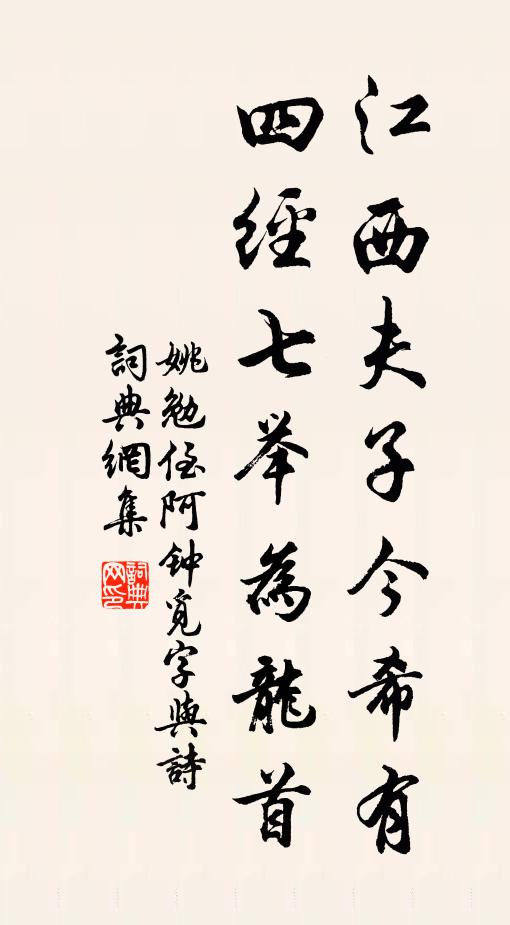 江西夫子今希有
四經七举為龍首
姚勉侄阿钟覓字與詩
詞典網集
詞典网印